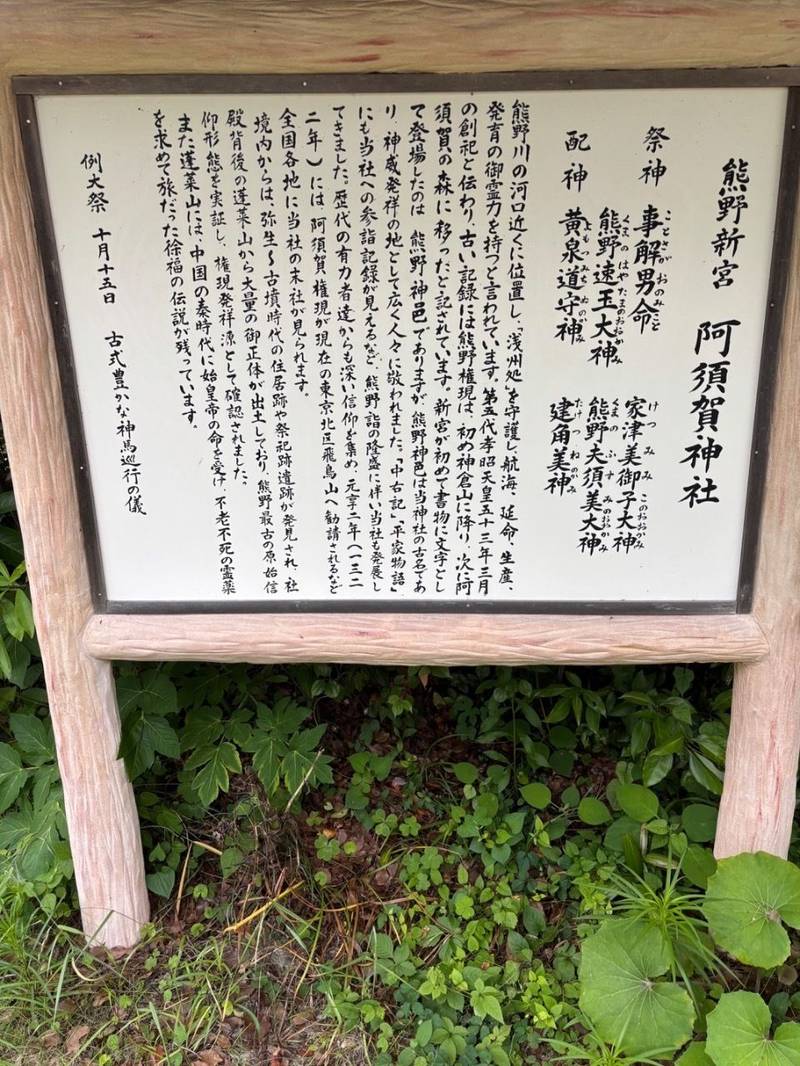 熊野新宮 阿須賀神社
祭神 事解男命 家津美御子大神
ことさかおのみこと けつみみこのおおかみ
熊野速玉大神 熊野夫須美大神
くまのはやたまのおおかみ くまのふすみのおおかみ
配神 黄泉道守神 建角美神
よもつみちもりのかみ たけつねのかみ
熊野川の河口近くに位置し、「浅州処」を守護し、航海、延命、生産、
発育の御霊力を持つと言われています。第五代孝昭天皇五十三年三月
の創祀と伝わり、古い記録には熊野権現は、初め神倉山に降り、次に阿
須賀の森に移ったと記されています。新宮が初めて書物に文字とし
て登場したのは 熊野神邑でありますが、熊野神邑は当神社の古名であ
り、神威発祥の地として広く人々に敬われました。「中右記」、「平家物語」
にも当社への参詣記録が見えるなど、熊野詣の隆盛に伴い当社も発展し
てきました。歴代の有力者達からも深い信仰を集め、元享二年(一三二
二年)には 阿須賀権現が現在の東京北区飛鳥山へ勧請されるなど
全国各地に当社の末社が見られます。
境内からは、弥生〜古墳時代の住居跡や祭祀跡遺跡が発見され、社
殿背後の蓬莱山から大量の御正体が出土しており、熊野最古の原始信
仰形態を実証し、権現発祥源として確認されました。
また蓬莱山には、中国の秦時代に始皇帝の命を受け 不老不死の霊薬
を求めて旅だった徐福の伝説が残っています。
例大祭 十月十五日 古式豊かな神馬巡行の儀